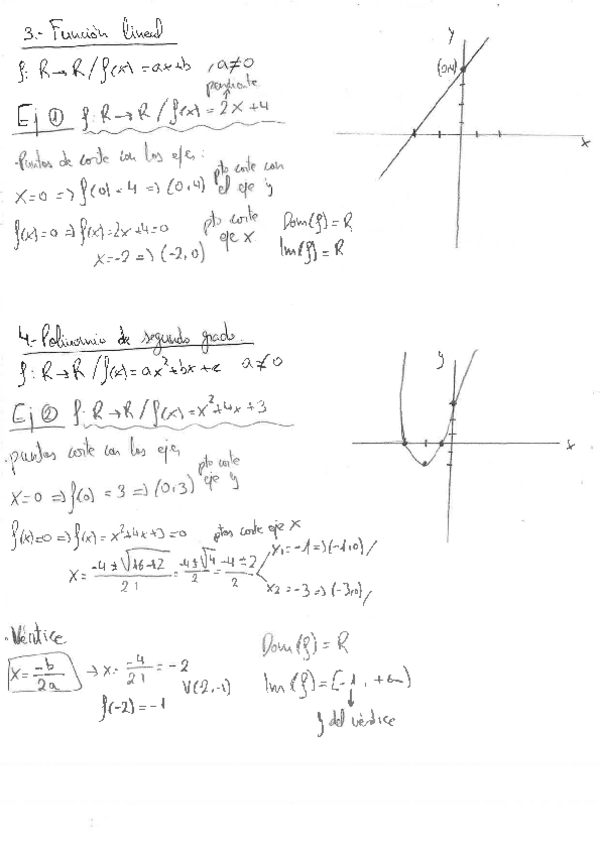 3.- Función lineal
f: R→R / f(x) = ax+b , a≠0
pendiente
Ej ① f: R→R / f(x) = 2x+4
·Puntos de corte con los ejes:
x=0 => f(0) = 4 => (0,4) pto corte con el eje y
f(x)=0 => f(x)=2x+4=0 pto corte eje x
x=-2 => (-2,0)
Dom(f) = R
Im(f) = R
y
(0,4)
x
4.- Polinomio de segundo grado.
f: R→R / f(x)=ax²+bx+c a≠0
Ej ② f: R→R / f(x)=x²+4x+3
·puntos corte con los ejes
x=0 => f(0) = 3 => (0,3) pto corte eje y
f(x)=0 => f(x)=x²+4x+3=0 ptos corte eje x
x = -4±√16-12 / 2·1 = -4±√4 / 2 = -4±2 / 2
x₁=-1=>(-1,0)/
x₂=-3=>(-3,0)/
y
x
·Vértice
x = -b / 2a → x = -4 / 2·1 = -2
f(-2) = -1
V(-2,-1)
Dom(f) = R
Im(f) = [-1, +∞)
y del vértice